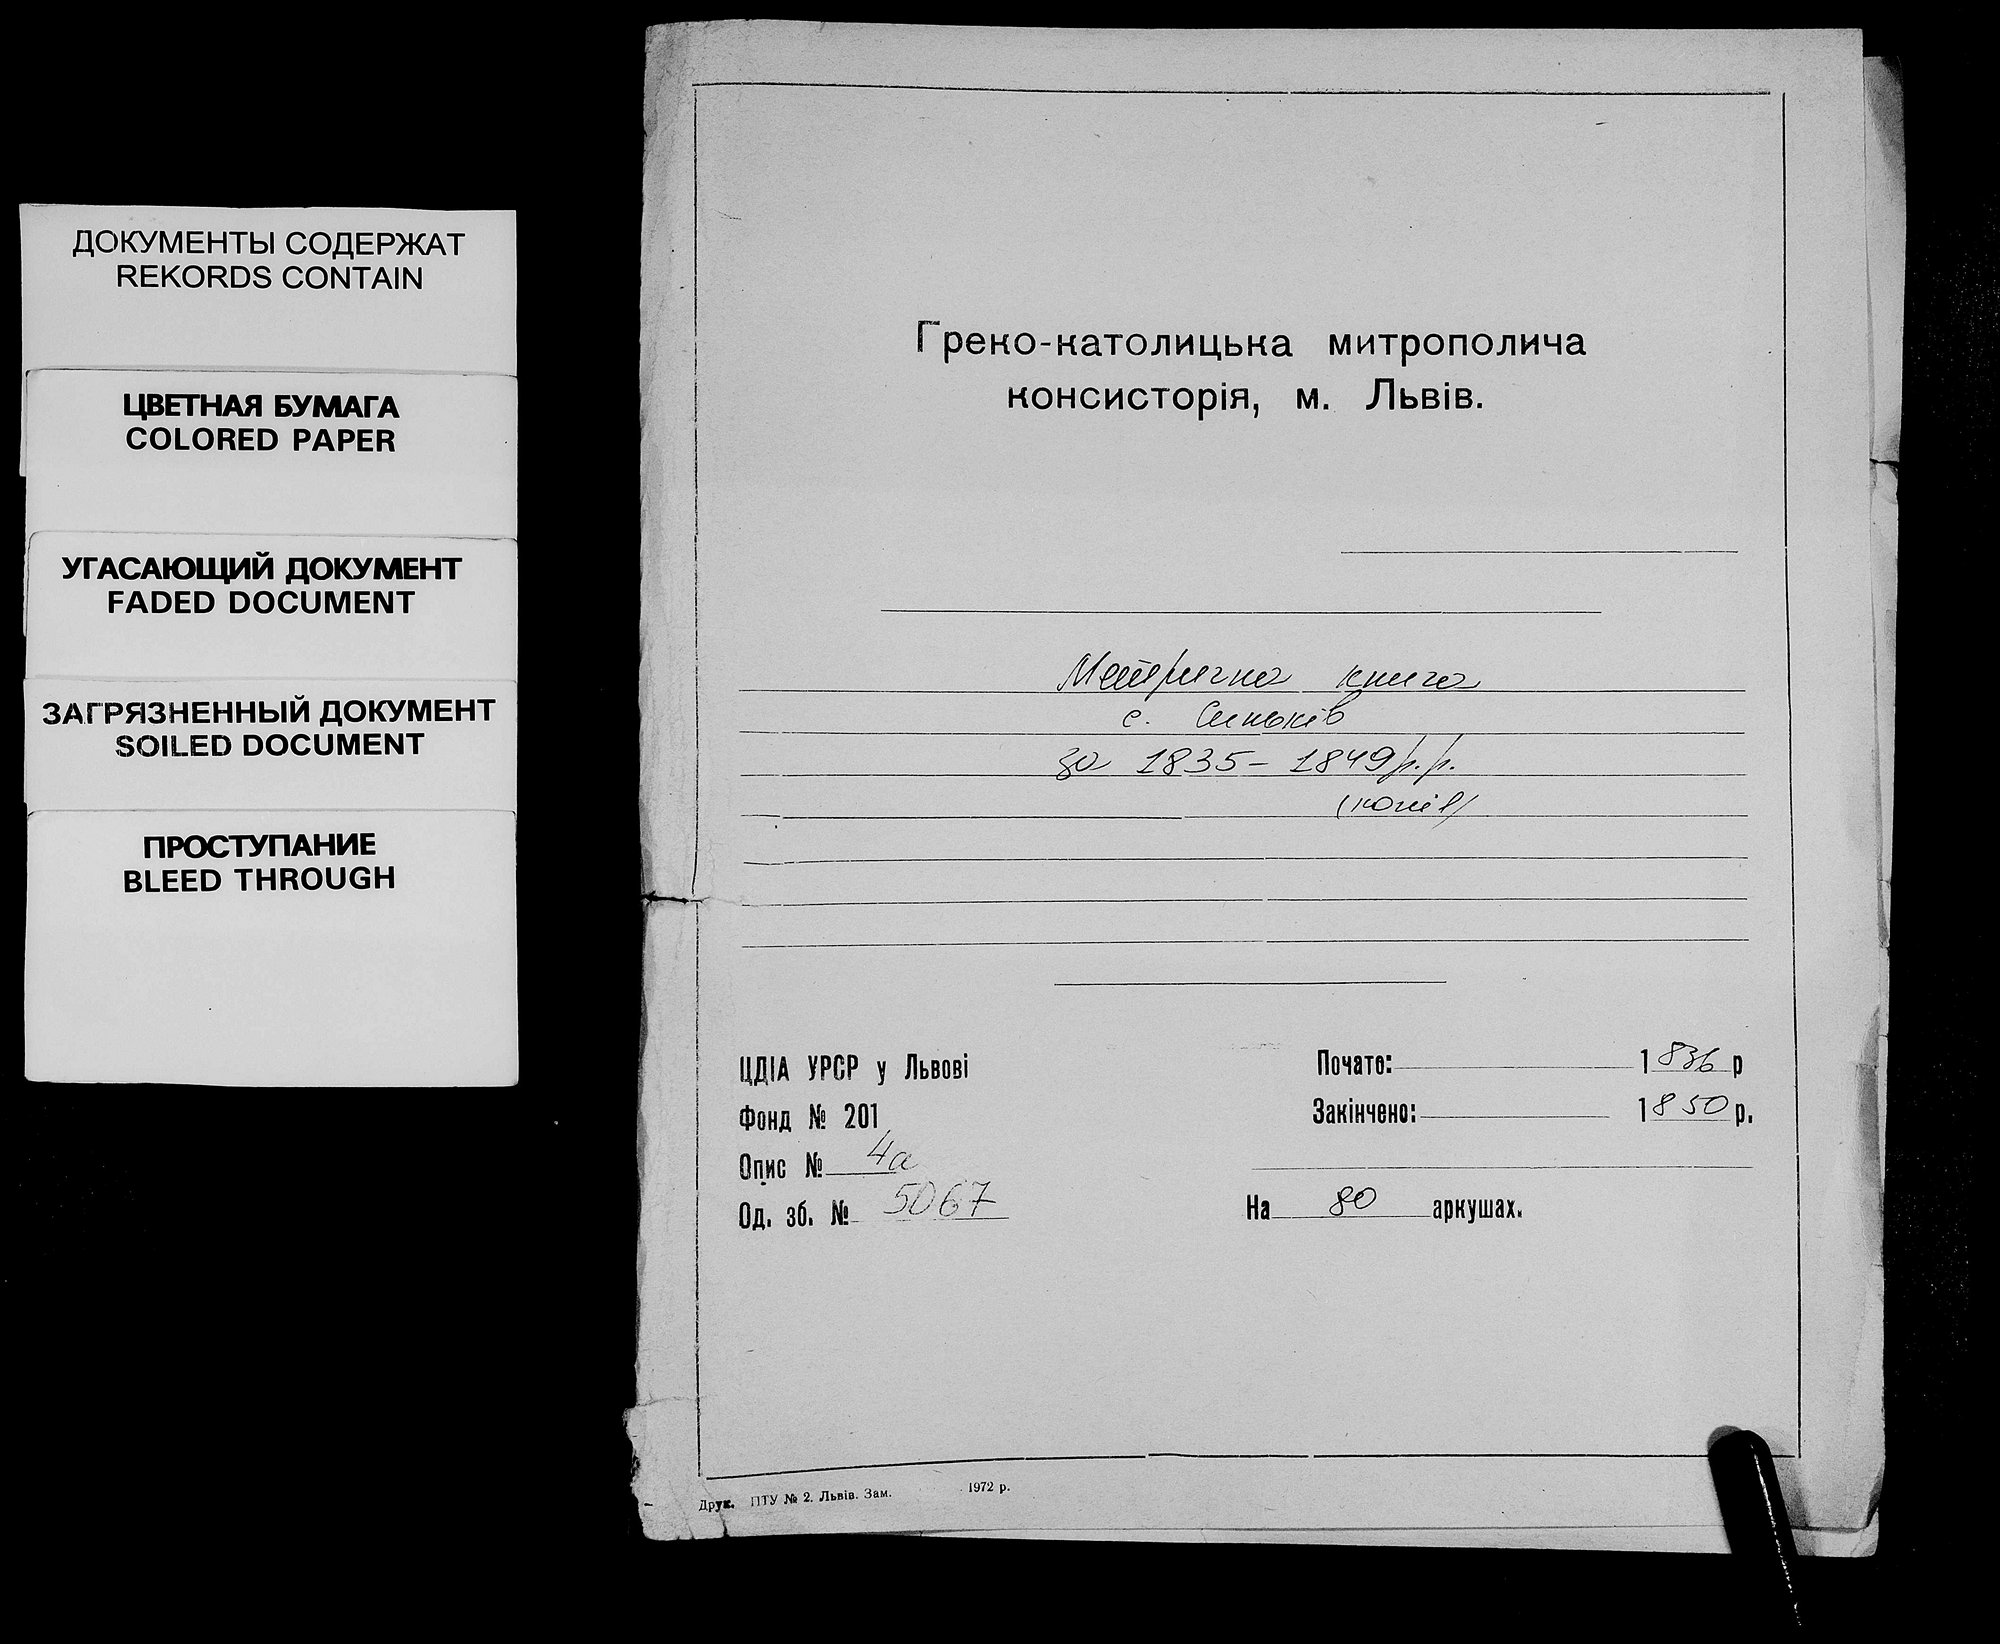 ДОКУМЕНТЫ СОДЕРЖАТ
REKORDS CONTAIN
ЦВЕТНАЯ БУМАГА
COLORED PAPER
УГАСАЮЩИЙ ДОКУМЕНТ
FADED DOCUMENT
ЗАГРЯЗНЕННЫЙ ДОКУМЕНТ
SOILED DOCUMENT
ПРОСТУПАНИЕ
BLEED THROUGH
Греко-католицька митрополича
консисторія, м. Львів.
Метрична книга
с. Синьків
за 1835-1849 р.р.
(копія)
ЦДІА УРСР у Львові
Фонд № 201
Опис № 4а
Од. зб. № 5067
Почато: 1836 р
Закінчено: 1850 р.
На 80 аркушах.
Друк. ПТУ № 2. Львів. Зам. 1972 р.